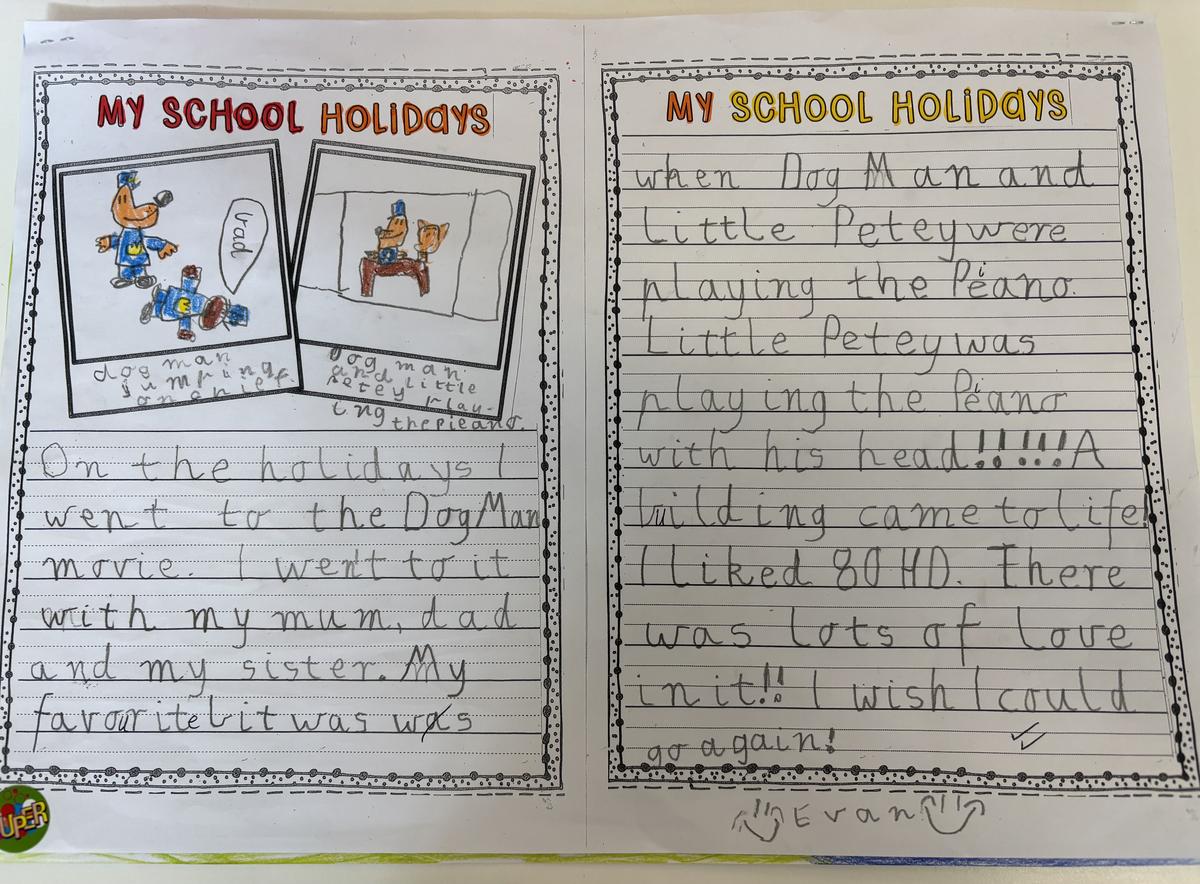 MY SCHOOL HOLIDAYS
dog man
jumping
on chief.
Dog man
and little
Petey play-
ing
the pieano.
On the holidays I
went to the Dog Man
movie. I went to it
with my mum, dad
and my sister. My
favourite bit was was
MY SCHOOL HOLIDAYS
when Dog Man and
Little Petey were
playing the Pieano.
Little Petey was
playing the Pieano
with his head!!!!!! A
building came to life!
I liked 80 HD. There
was lots of love
in it!! I wish I could
go again!
Evan
UPER